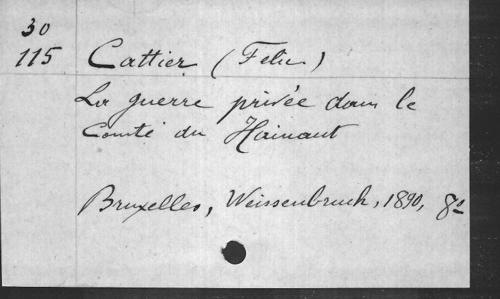 30
115 Cattier (Felic)
La guerre privée dans le
Comté du Hainaut
Bruxelles, Weissenbruch, 1890, 8º